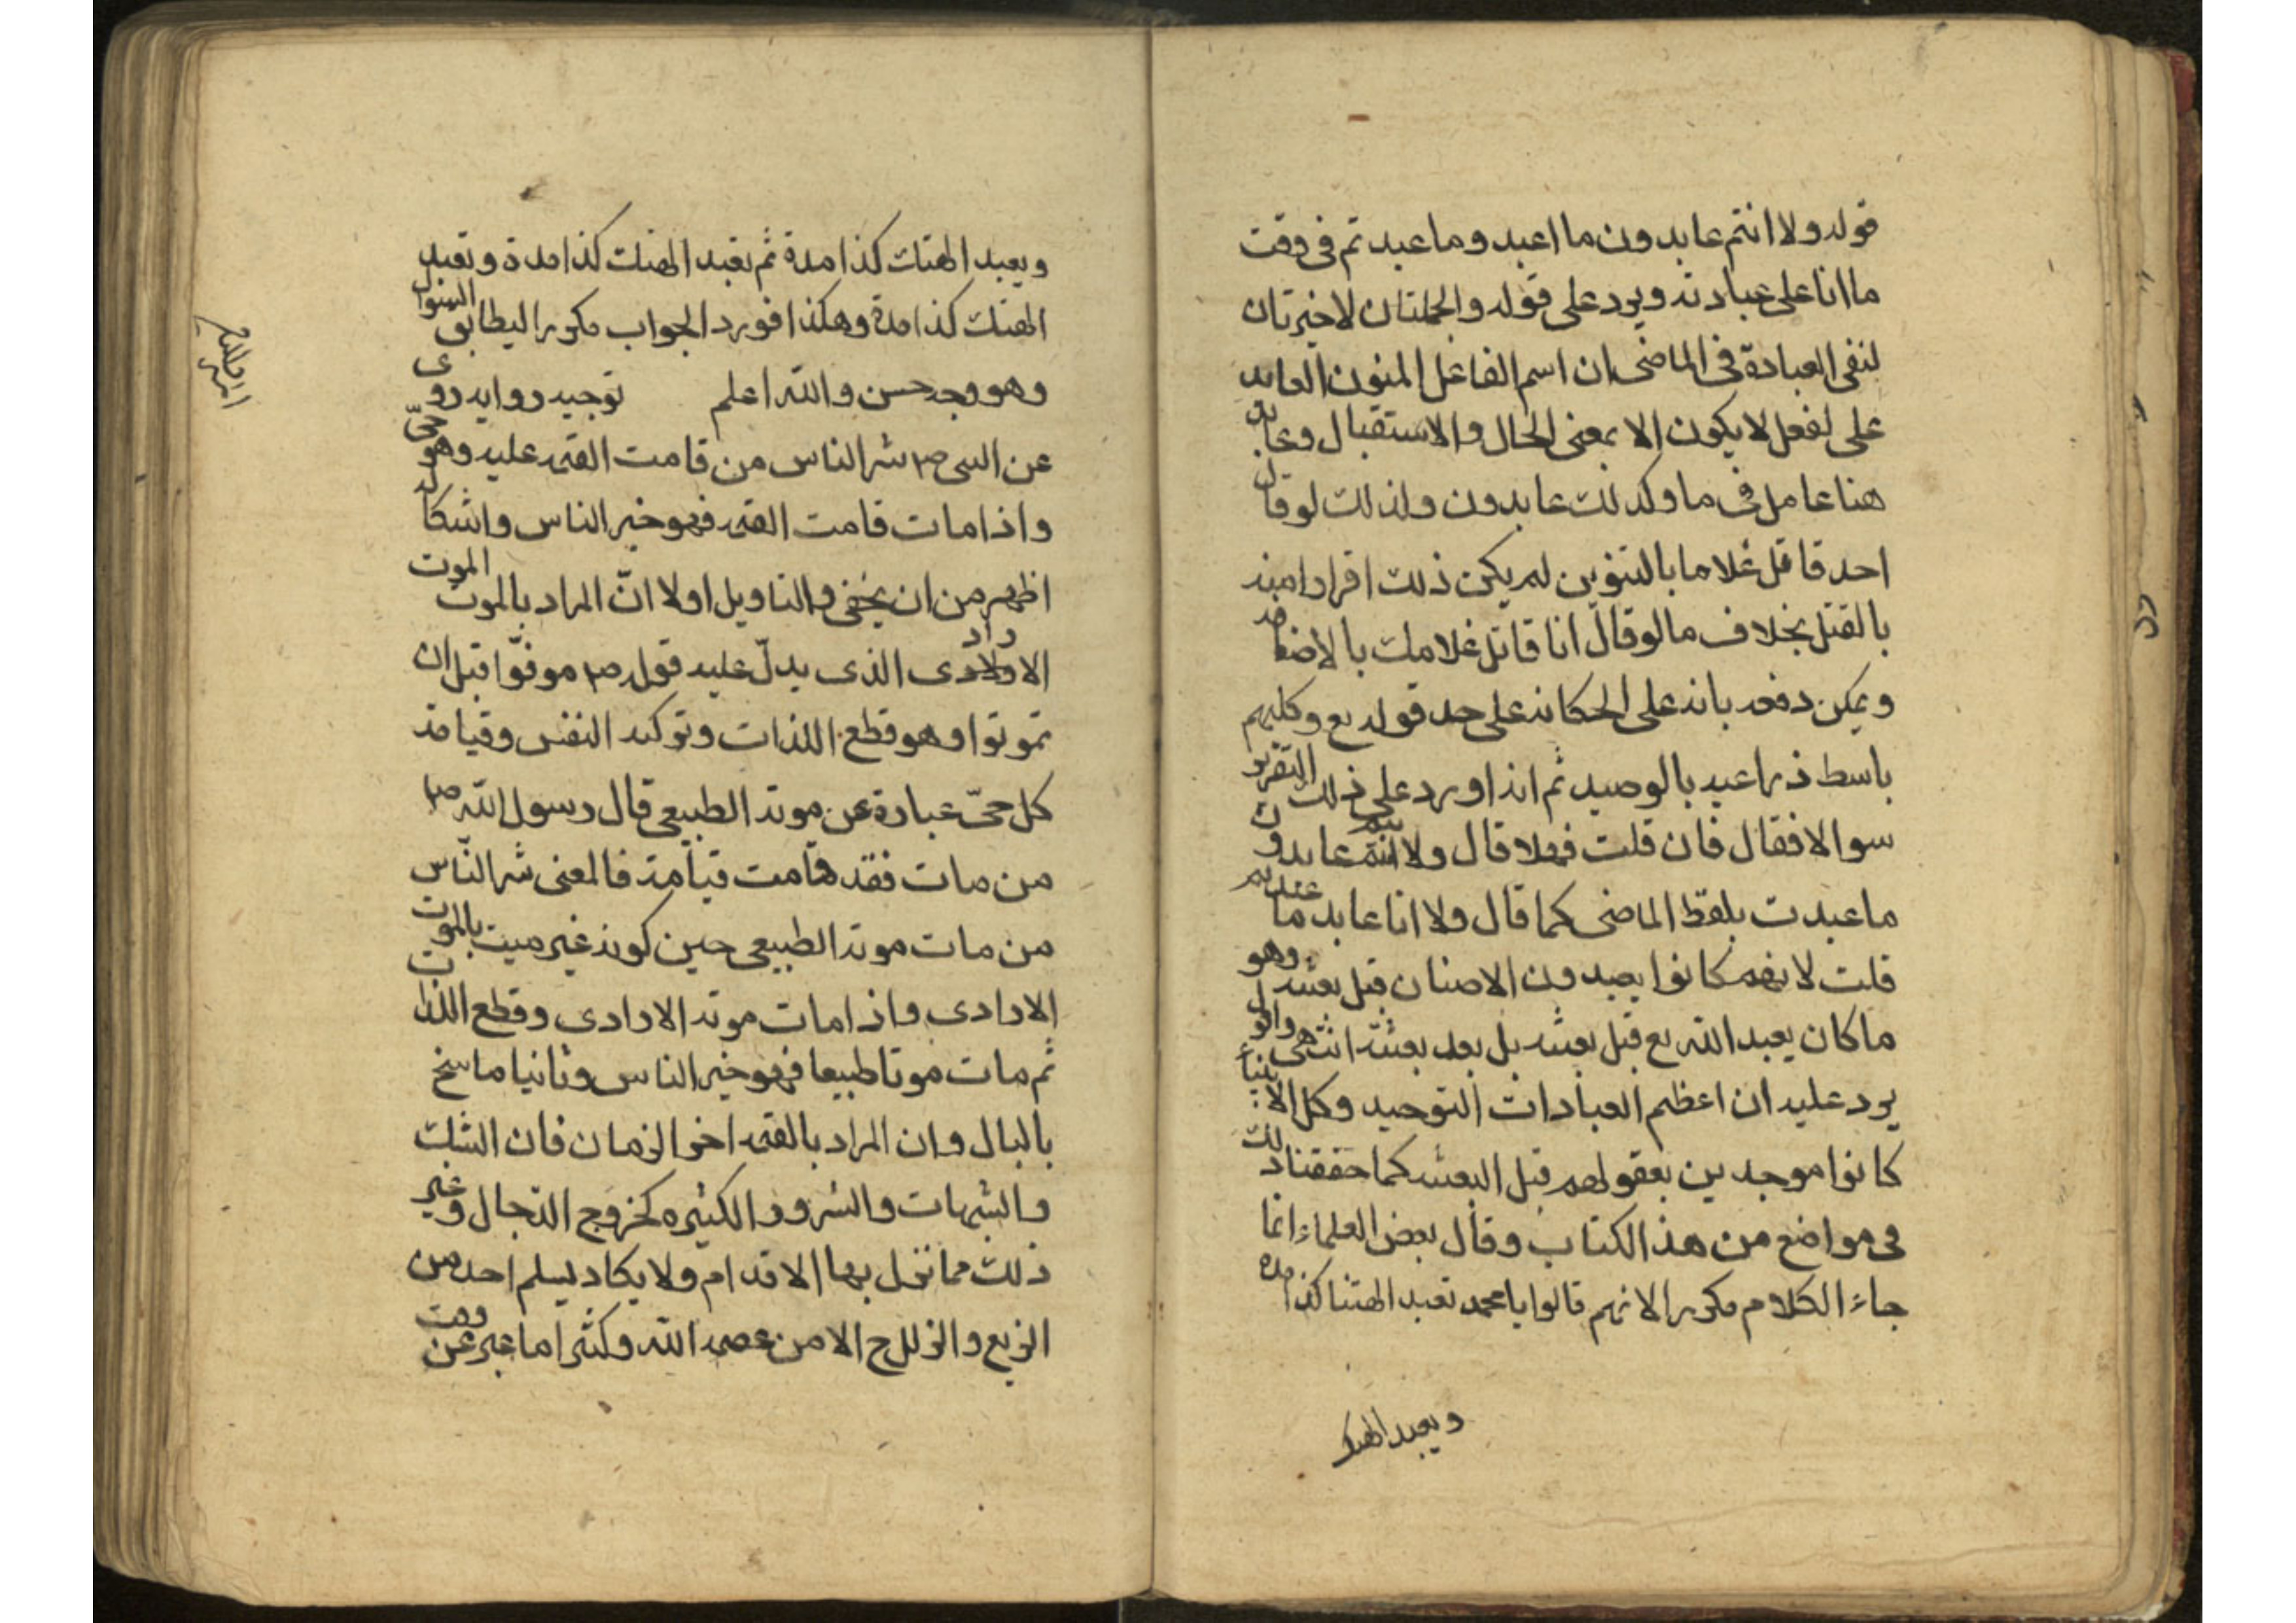 قوله ولا انتم عابدون ما اعبد وما عبدتم فى وقت
ما انا على عبادته ويرد على قوله والجملتان الاخيرتان
لنفى العبادة فى الماضى ان اسم الفاعل المنون العابد
على لفعل لا يكون الا بمعنى الحال والاستقبال وعابد
هنا عامل فى ما وكذلك عابدون ولذلك لو قال
احد قاتل غلاما بالتنوين لم يكن ذلك اقرارا منه
بالقتل بخلاف ما لو قال انا قاتل غلامك بالاضافة
ويمكن دفعه بانه على الحكاية على حد قوله تع وكلبهم
باسط ذراعيه بالوصيد ثم انه اورد على ذلك التقرير
سوالا فقال فان قلت فهلا قال ولا انتم عابدون
ما عبدت بلفظ الماضى كما قال ولا انا عابد ما عبدتم
قلت لانهم كانوا يعبدون الاصنان قبل بعثته وهو
ما كان يعبد الله تع قبل بعثته بل بعد بعثته انتهى واقول
يرد عليه ان اعظم العبادات التوحيد وكل الانبياء
كانوا موحدين بعقولهم قبل البعثة كما حققنا ذلك
فى مواضع من هذا الكتاب وقال بعض العلماء انما
جاء الكلام مكررا لانهم قالوا يا محمد تعبد الهتنا كذا مدة
ويعبد الهتك
ويعبد الهتك كذا مدة ثم نعبد الهتك كذا مدة وتعبد
الهتك كذا مدة وهكذا فورد الجواب مكررا ليطابق السئوال
وهو وجه حسن والله اعلم توجيه رواية روى
عن النبى ص شر الناس من قامت القيمة عليه وهو حىّ
واذا مات قامت القيمة فهو خير الناس واشكاله
اظهر من ان يخفى والتاويل اولا انّ المراد بالموت الموت
الارادى الذى يدلّ عليه قوله ص موتوا قبل ان
تموتوا وهو قطع اللذات وتوكيد النفس وقيامة
كل حىّ عبارة عن موته الطبيعى قال رسول الله ص
من مات فقد قامت قيامته فالمعنى شر النّاس
من مات موته الطبيعى حين كونه غير ميت بالموت
الارادى واذا مات موته الارادى وقطع اللذات
ثم مات موتا طبيعا فهو خير الناس وثانيا ما سنح
بالبال وان المراد بالقيمة اخر الزمان فان الشك
والشبهات والشرور الكثيرة كخروج الدّجال وغير
ذلك مما تزل بها الاقدام ولا يكاد يسلم احد من
الزيغ والزلل ح الا من عصمه الله وكثيرا ما عبر عن وقت